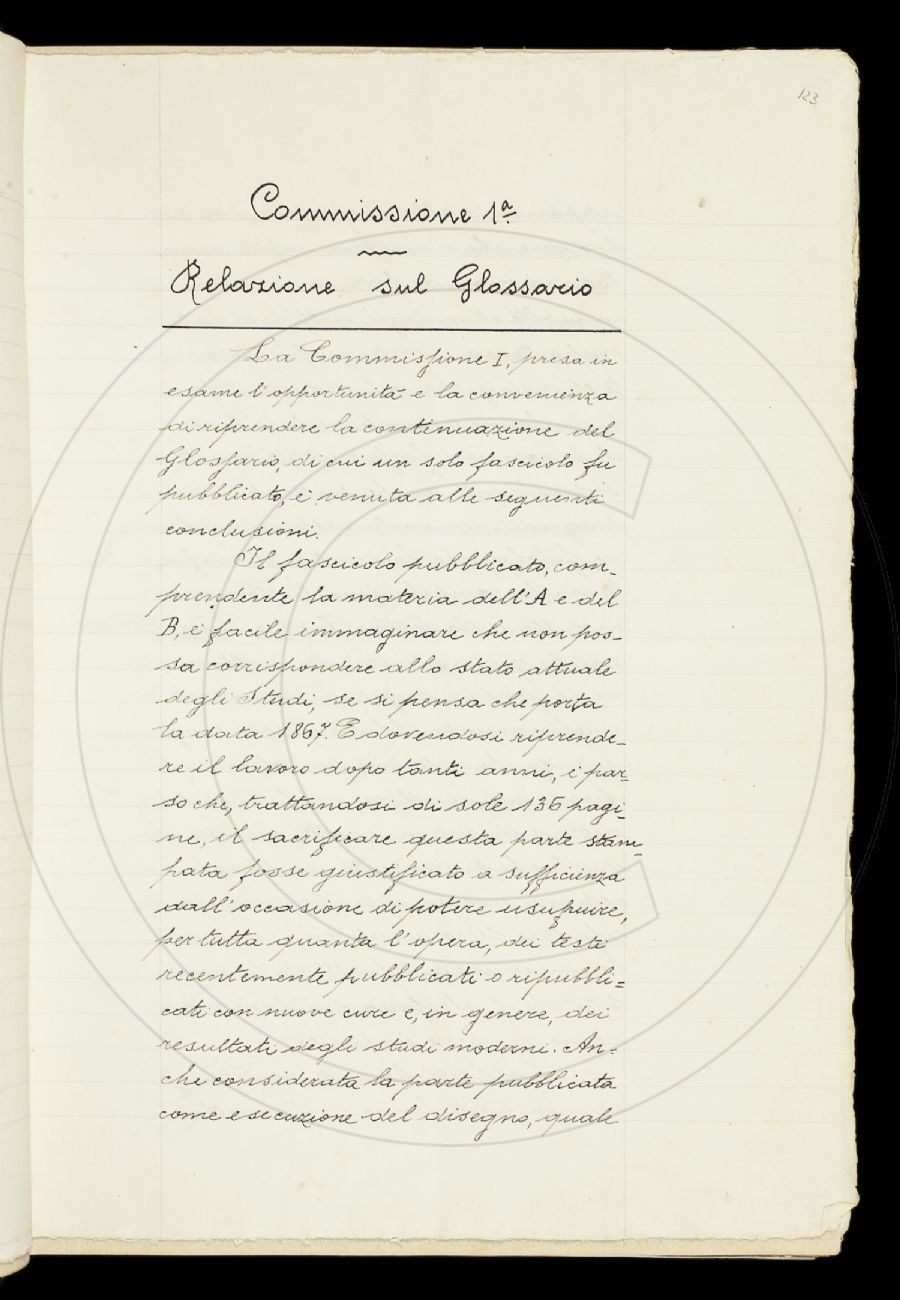 123
Commissione 1ª
Relazione sul Glossario
La Commissione I, presa in
esame l'opportunità e la convenienza
di riprendere la continuazione del
Glossario, di cui un solo fascicolo fu
pubblicato, è venuta alle seguenti
conclusioni.
Il fascicolo pubblicato, com-
prendente la materia dell'A e del
B, è facile immaginare che non pos-
sa corrispondere allo stato attuale
degli Studi, se si pensa che porta
la data 1867. E dovendosi riprende-
re il lavoro dopo tanti anni, è par-
so che, trattandosi di sole 136 pagi-
ne, il sacrificare questa parte stam-
pata fosse giustificato a sufficienza
dall'occasione di potere usufruire,
per tutta quanta l'opera, dei testi
recentemente pubblicati o ripubbli=
cati con nuove cure e, in genere, dei
resultati degli studi moderni. An=
che considerata la parte pubblicata
come esecuzione del disegno, quale